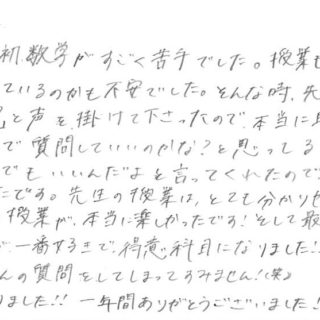 初、数学がすごく苦手でした。授業も
ているのかも不安でした。そんな時、先
と声を掛けて下さったので、本当に
で質問していいのかな?と思ってる
でもいいんだよと言ってくれたので
たです。先生の授業は、とても分かりや
授業が、本当に楽しかったです!そして最
が一番すきで、得意科目になりました!
んの質問をしてしまってすみません!(笑)
りました!! 一年間ありがとうございました!